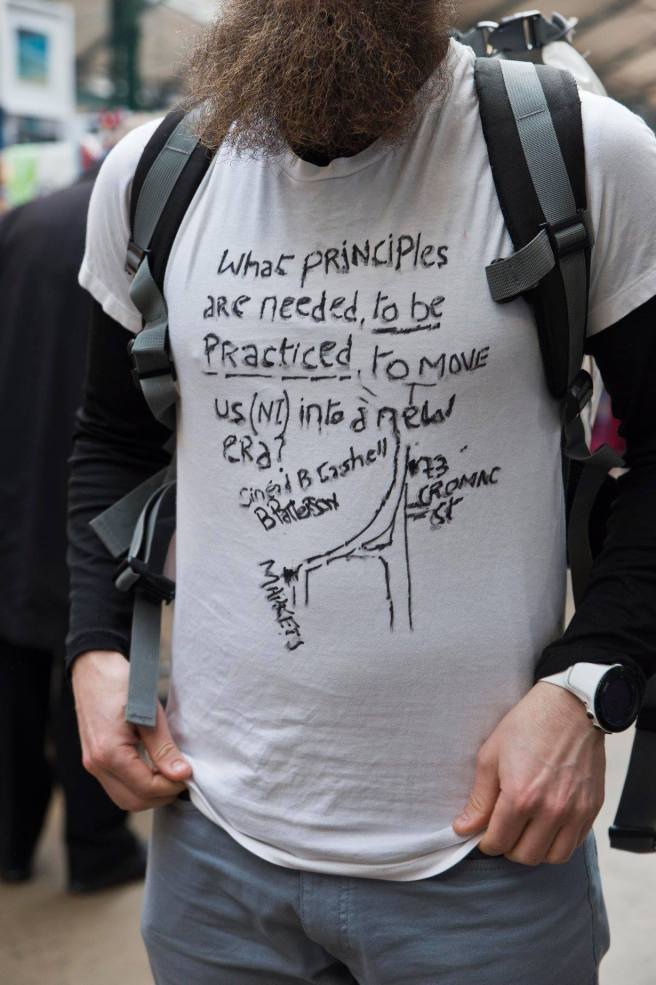 What PRINCIPles
are needed, to be
PRacticed, to MOVE
us (NI) into a new
ERa?
Sinéad B Cashell
B Patterson
73
CROMAC
St
MARKETS